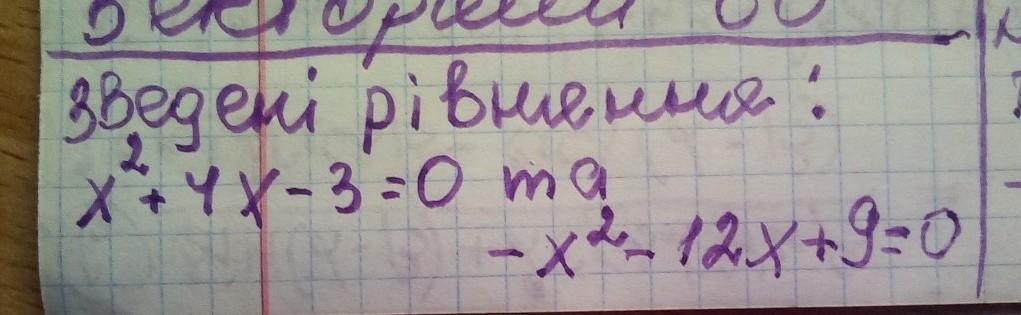 Зведені рівняння:
x²+4x-3=0 та
-x²-12x+9=0